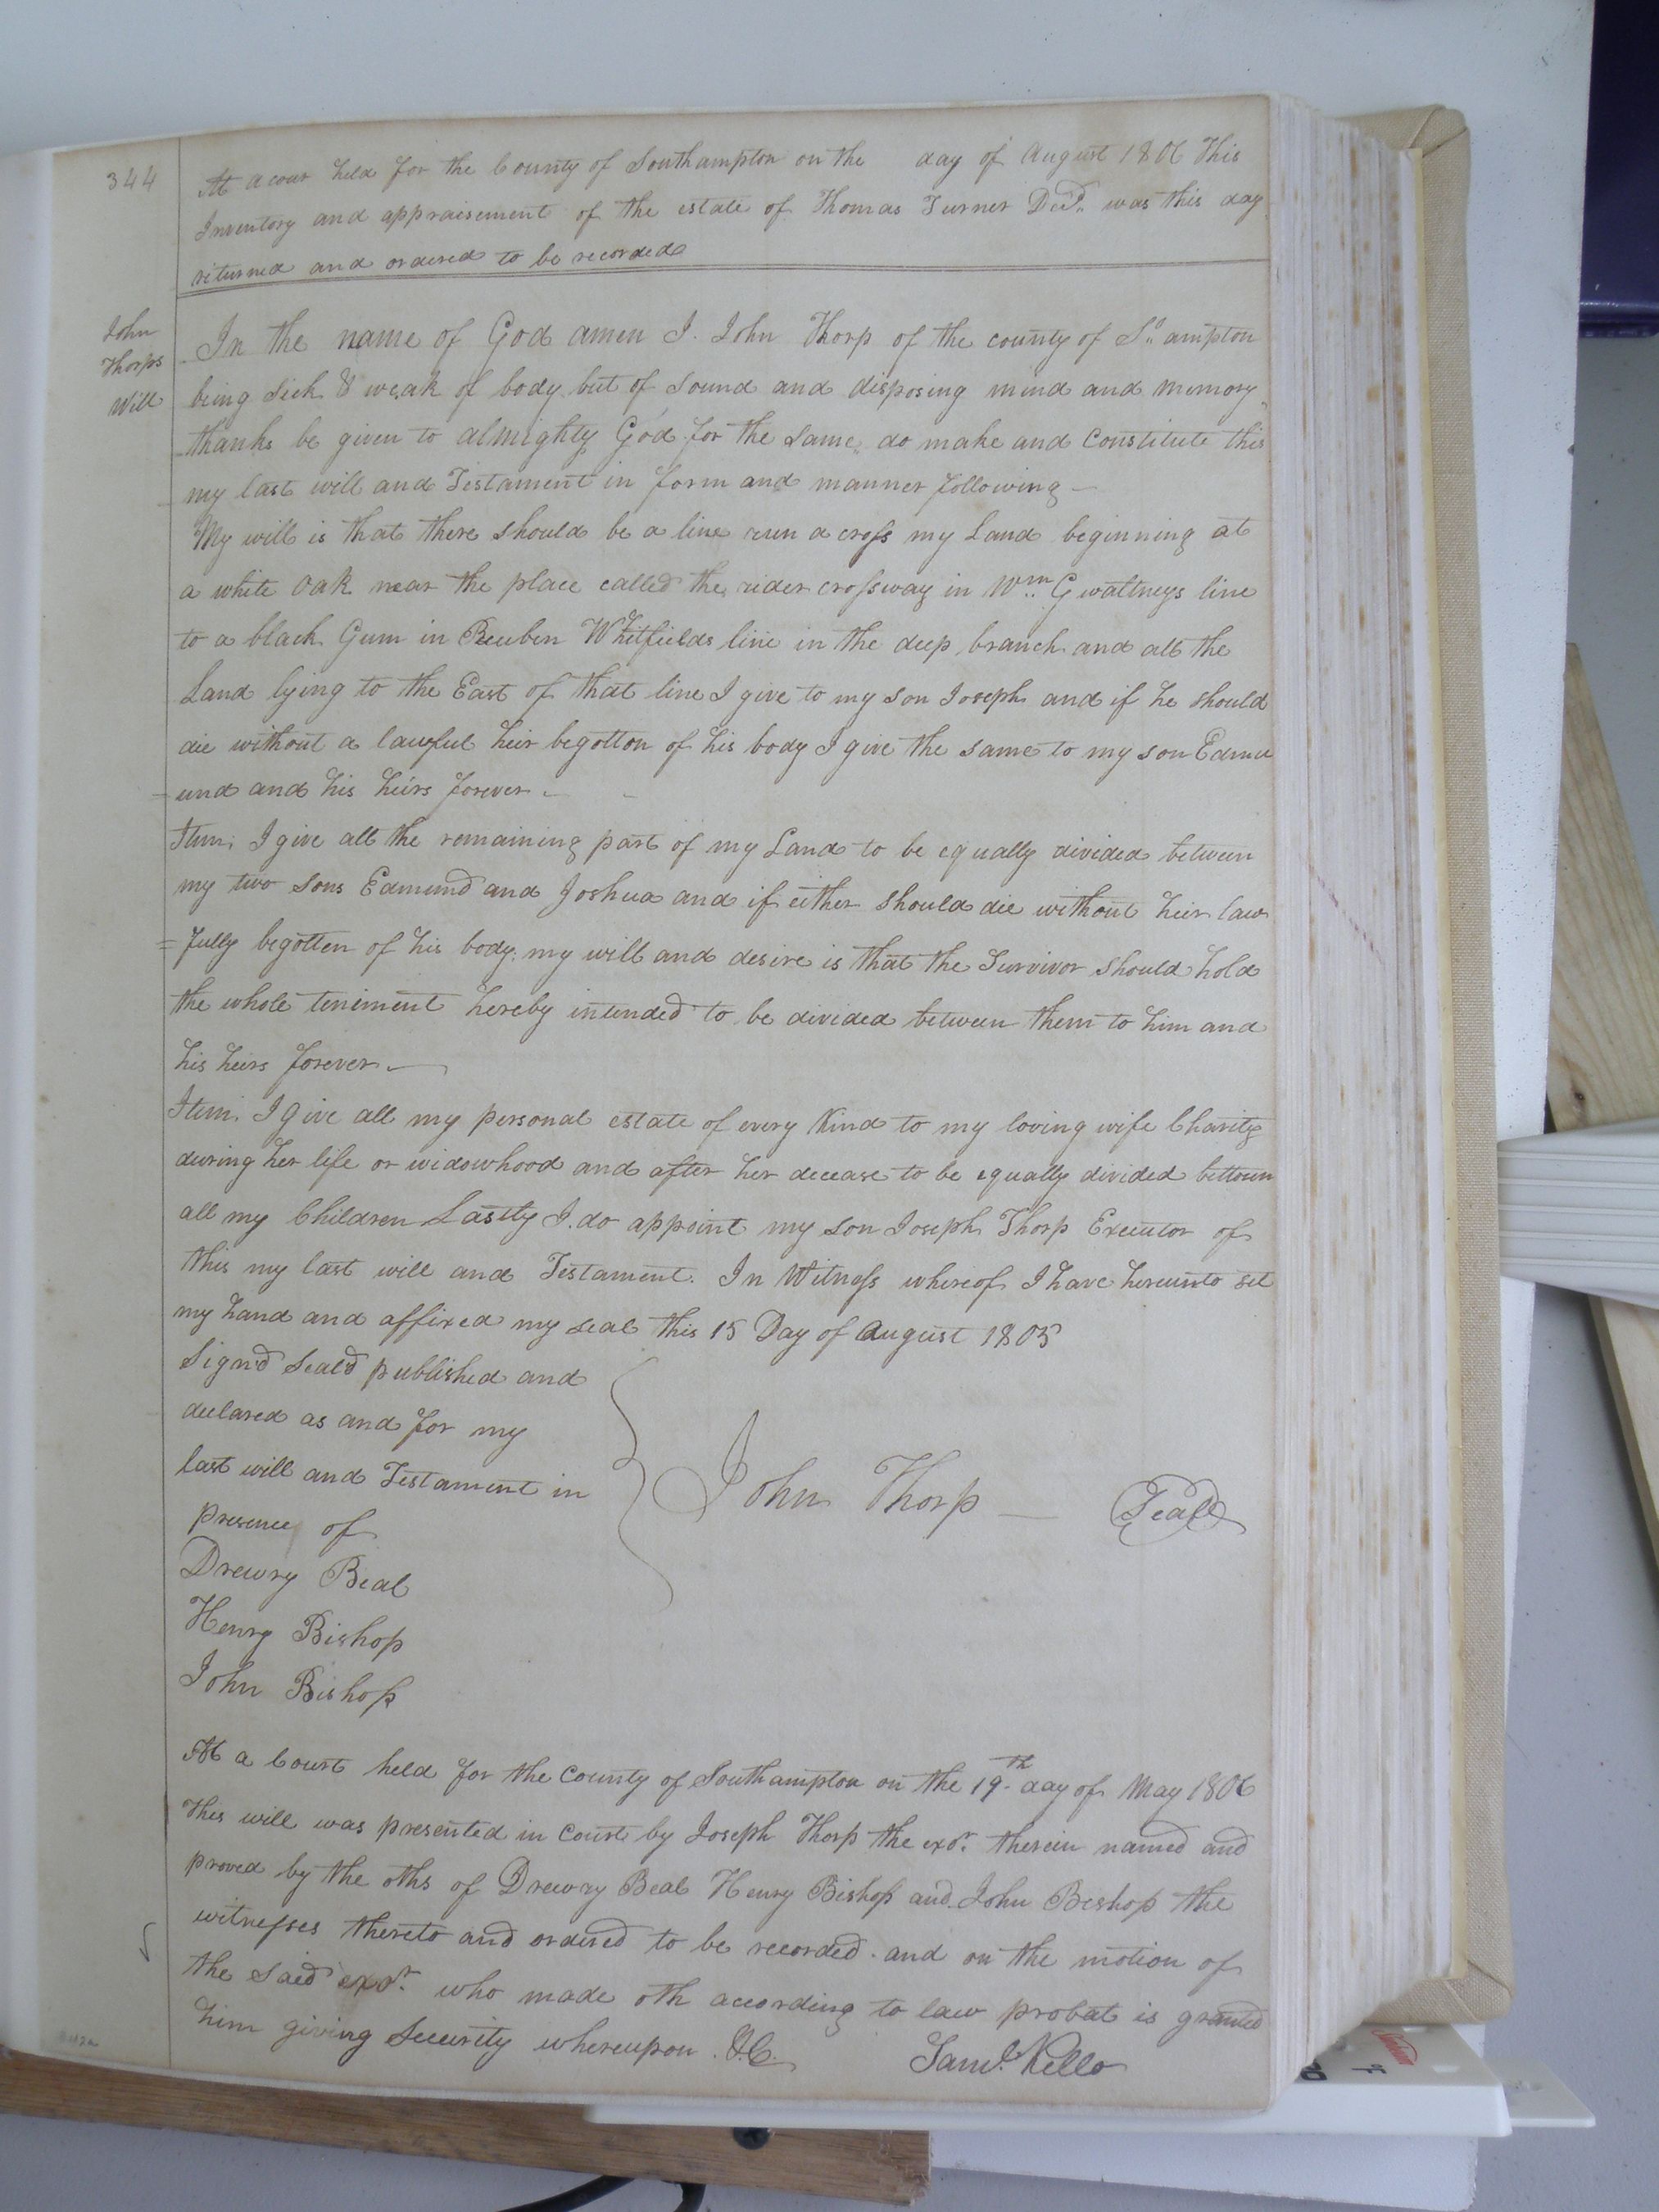 344
At a cour held for the County of Southampton on the day of August 1806 This
Inventory and appraisement of the estate of Thomas Turner Decd. was this day
returned and ordered to be recorded
John
Thorps
Will
In the name of God amen I. John Thorp of the county of So. ampton
being Sick & weak of body but of Sound and disposing mind and memory
thanks be given to almighty God for the same, do make and Constitute this
my last will and Testament in form and manner following —
My will is that there should be a line run a cross my Land beginning at
a white Oak near the place called the rider crossway in Wm. Gwaltneys line
to a black Gum in Reuben Whitfields line in the deep branch and all the
Land lying to the East of that line I give to my son Joseph and if he should
die without a lawful heir begotton of his body I give the same to my son Edmu
und and his heirs forever —
Item. I give all the remaining part of my Land to be equally divided between
my two Sons Edmund and Joshua and if either should die without heir law
= fully begotten of his body, my will and desire is that the Survivor should hold
the whole teniment hereby intended to be divided between them to him and
his heirs forever —
Item. I Give all my personal estate of every Kind to my loving wife Charity
during her life or widowhood and after her decease to be equally divided bettown
all my Children Lastly I. do appoint my son Joseph Thorp Executor of
this my last will and Testament. In Witness whereof I have hereunto set
my hand and affixed my seal this 15 Day of August 1805
Sign'd Seal'd published and
declared as and for my
last will and Testament in
presence of
John Thorp — Seal
Drewry Beal
Henry Bishop
John Bishop
At a Court held for the County of Southampton on the 19th day of May 1806
This will was presented in Court by Joseph Thorp the exor. therein named and
proved by the oths of Drewry Beal Henry Bishop and John Bishop the
witnesses thereto and ordered to be recorded. and on the motion of
the said exor. who made oth according to law probat is granted
him giving Security whereupon &C.
Saml. Kello